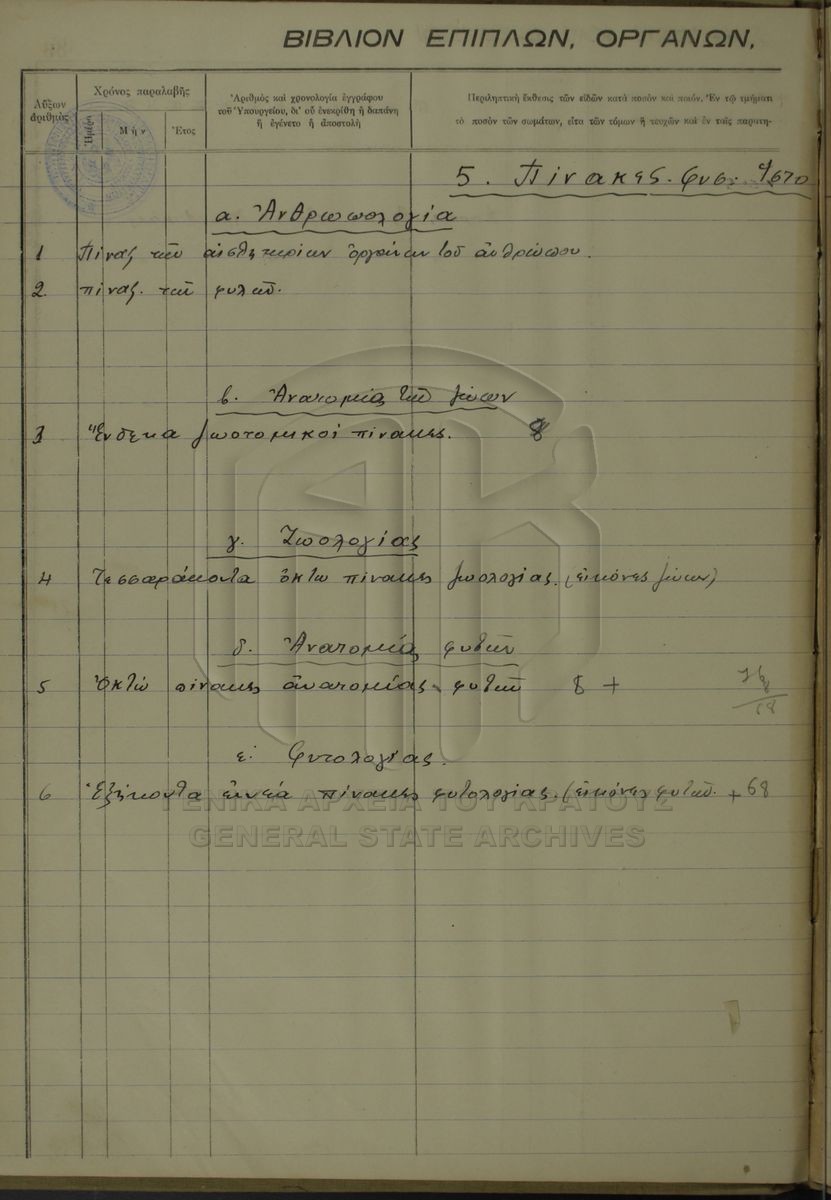 ΒΙΒΛΙΟΝ ΕΠΙΠΛΩΝ, ΟΡΓΑΝΩΝ,
Αὔξων
ἀριθμὸς
Χρόνος παραλαβῆς
Ἡμέρα
Μὴν
Ἔτος
Ἀριθμὸς καὶ χρονολογία ἐγγράφου
τοῦ Ὑπουργείου, δι' οὗ ἐνεκρίθη ἡ δαπάνη
ἢ ἐγένετο ἡ ἀποστολὴ
Περιληπτικὴ ἔκθεσις τῶν εἰδῶν κατὰ ποσὸν καὶ ποιόν. Ἐν τῷ τμήματι
τὸ ποσὸν τῶν σωμάτων, εἶτα τῶν τόμων ἢ τευχῶν καὶ ἐν ταῖς παρατη-
5. Πίνακες. φυσ. Ἱστο
α. Ἀνθρωπολογία
1 Πίναξ τῶν αἰσθητηρίων ὀργάνων τοῦ ἀνθρώπου.
2. πίναξ. τῶν φυλῶν.
β. Ἀνατομίας τῶν ζώων
3 Ἕνδεκα ζωοτομικοὶ πίνακες. 8
γ. Ζωολογίας
4 Τεσσαράκοντα ὀκτὼ πίνακες ζωολογίας. (εἰκόνες ζώων)
δ. Ἀνατομίας φυτῶν
5 Ὀκτὼ πίνακες ἀνατομίας φυτῶν 8 +
8
68
ε. Φυτολογίας.
6 Ἑξήκοντα ἐννέα πίνακες φυτολογίας. (εἰκόνες φυτῶν. + 68
ΓΕΝΙΚΑ ΑΡΧΕΙΑ ΤΟΥ ΚΡΑΤΟΥΣ
GENERAL STATE ARCHIVES